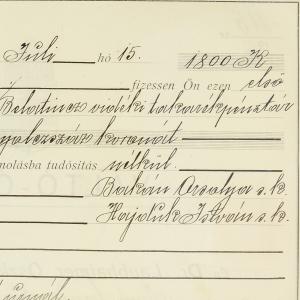 Juli hó 15. 1800 K
fizessen Ön ezen első
Belatincz vidéki takarékpénztár
nyolczszáz koronát
molásba tudósítás nélkül.
Bakán Orsolya s.k.
Hajduk István s.k.